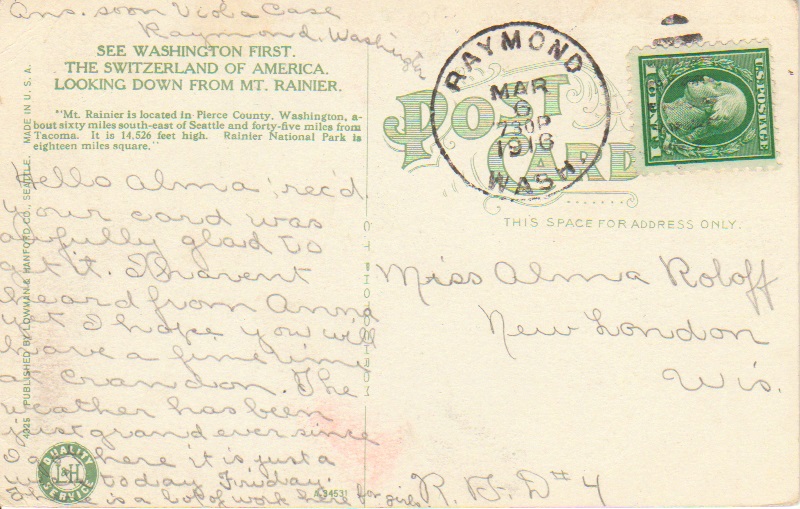 Ans. soon Viola Case
Raymond, Washington
SEE WASHINGTON FIRST.
THE SWITZERLAND OF AMERICA.
LOOKING DOWN FROM MT. RAINIER.
"Mt. Rainier is located in Pierce County, Washington, a-
bout sixty miles south-east of Seattle and forty-five miles from
Tacoma. It is 14,526 feet high. Rainier National Park is
eighteen miles square."
Hello Alma rec'd
your card was
awfully glad to
get it. I havent
heard from Anna
yet I hope you will
have a fine time
at Crandon. The
weather has been
just grand ever since
I am here it is just a
today Friday.
is a lot of work here for girls.
4025 PUBLISHED BY LOWMAN & HANFORD CO., SEATTLE. MADE IN U. S. A.
QUALITY
L&H
SERVICE
A-34531
POST
CARD
RAYMOND
MAR
230P
1916
WASH.
U.S. POSTAGE
1 CENT 1
THIS SPACE FOR ADDRESS ONLY.
Miss Alma Roloff
New London
Wis.
R. F. D #4